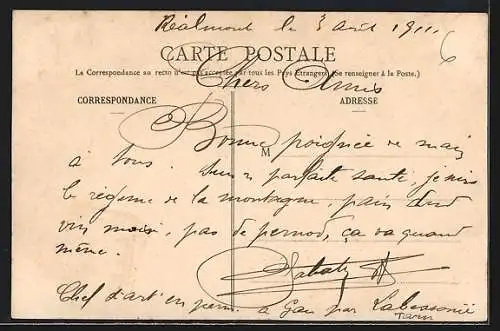 Réalmont le 3 août 1911
6
CARTE POSTALE
La Correspondance au recto n'est pas acceptée par tous les Pays Etrangers (Se renseigner à la Poste.)
Chers Amis
CORRESPONDANCE
ADRESSE
Bonne poignée de main
M
à tous. parfaite santé, je suis
le régime de la montagne, pain dur
vin mais, pas de pernod, ça va quand
même.
Chef d'art' en perm. à par Labessonié
Tarn